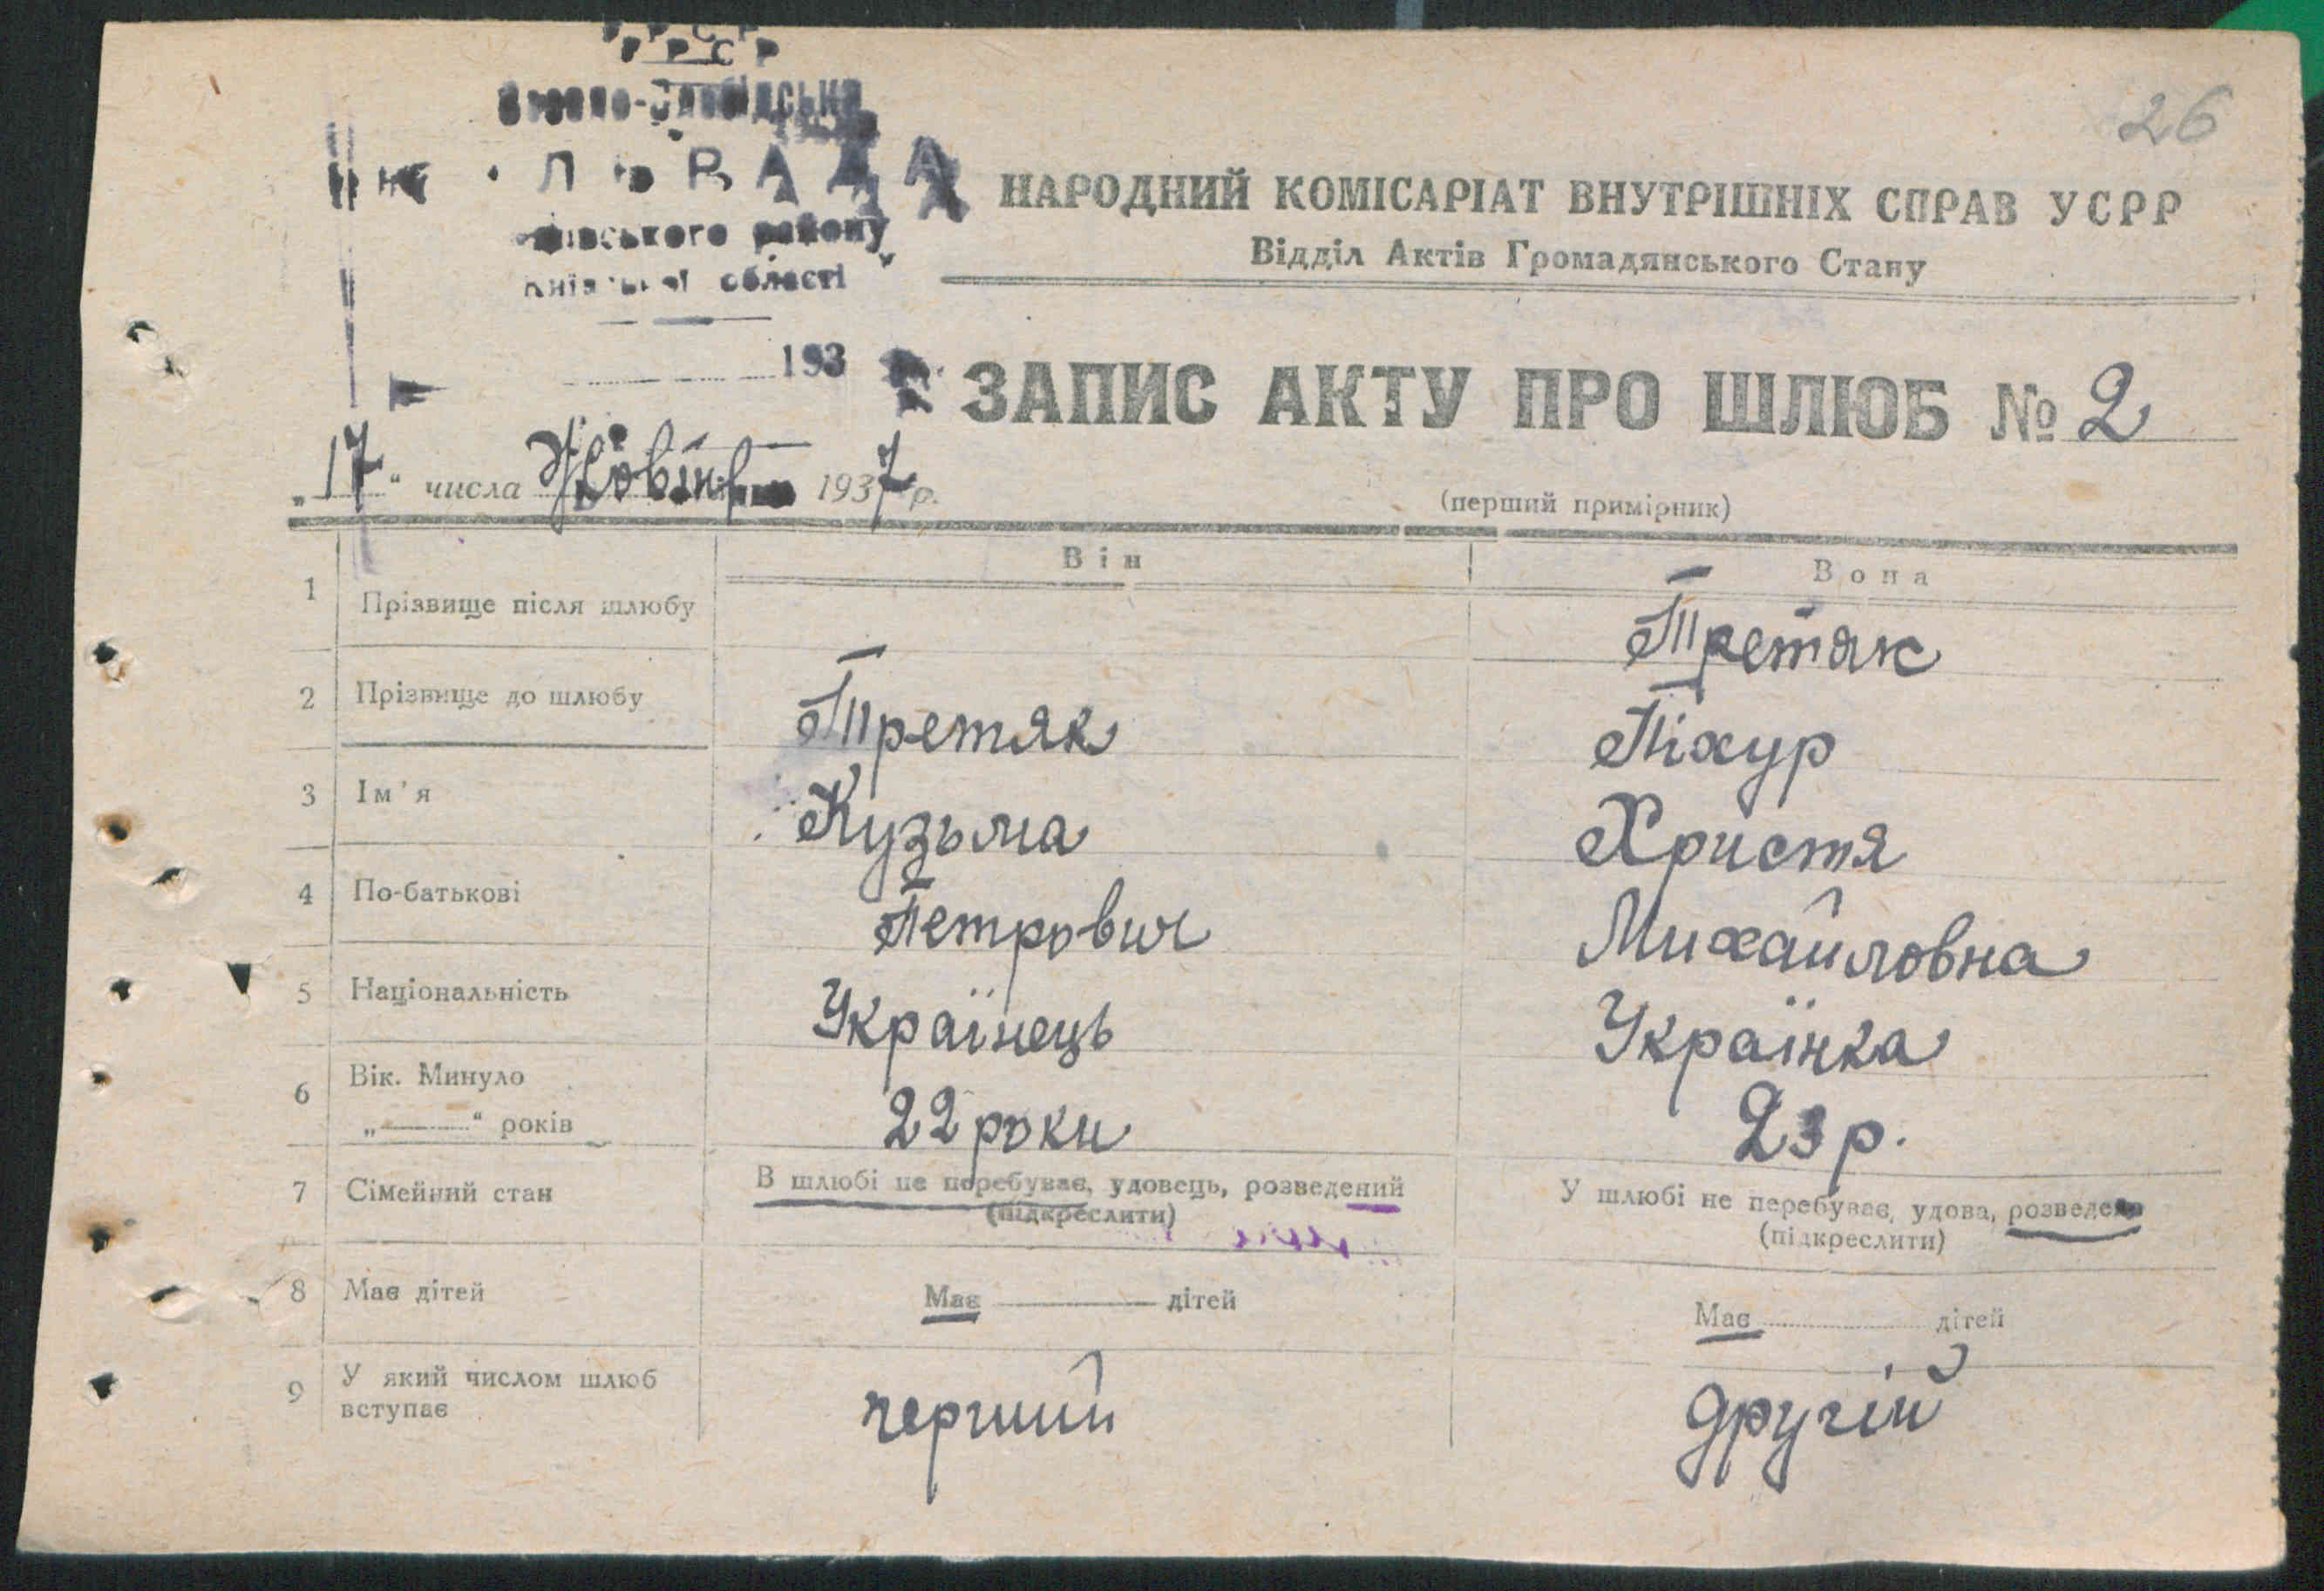 26
області
193
НАРОДНИЙ КОМІСАРІАТ ВНУТРІШНІХ СПРАВ УСРР
Відділ Актів Громадянського Стану
ЗАПИС АКТУ ПРО ШЛЮБ № 2
„17“ числа Жовтня 1937 р.
(перший примірник)
Він Вона
1 Прізвище після шлюбу Третяк
2 Прізвище до шлюбу Третяк Піхур
3 Ім'я Кузьма Христя
4 По-батькові Петрович Михайловна
5 Національність Українець Українка
6 Вік. Минуло
„———“ років 22 роки 23 р.
7 Сімейний стан В шлюбі не перебуває, удовець, розведений У шлюбі не перебуває, удова, розведена
(підкреслити) (підкреслити)
8 Має дітей Має ——— дітей Має ......... дітей
9 У який числом шлюб
вступає перший другій